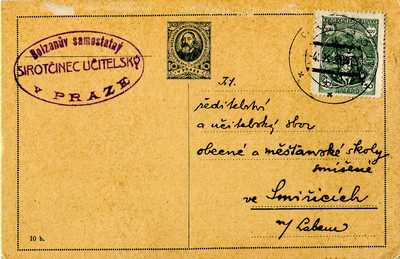 Bolzanův samostatný
SIROTČINEC UČITELSKÝ
V PRAZE
Tit.
ředitelství
a učitelský sbor
obecné a měšťanské školy
smíšené
ve Smiřicích
n/ Labem
10 h.